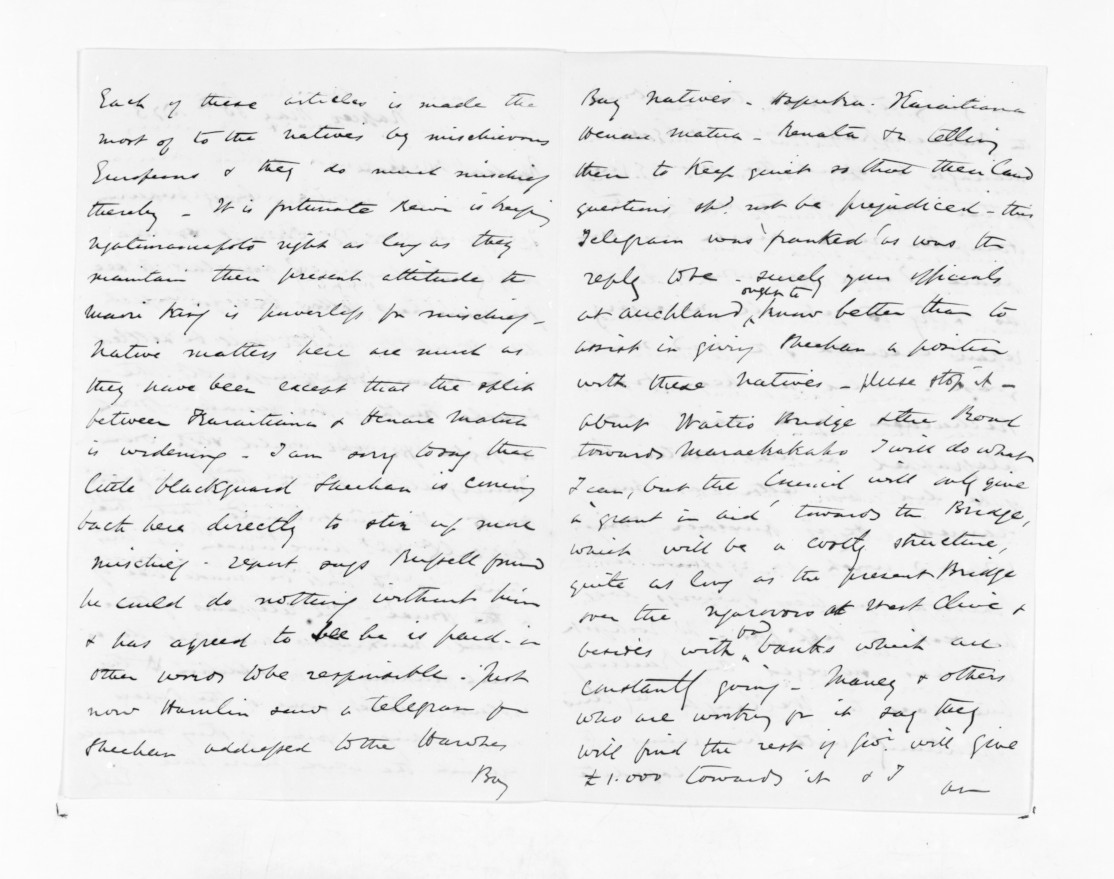 Each of these articles is made the
most of to the natives by mischievous
Europeans & they do much mischief
thereby - It is fortunate Rewi is keeping
Ngatimaniapoto right as long as they
maintain their present attitude the
Maori King is powerless for mischief -
Native matters here are much as
they have been except that the split
between Karaitiana & Henare Matua
is widening - I am sorry to say that
little blackguard Sheehan is coming
back here directly to stir up more
mischief - report says Russell found
he could do nothing without him
& has agreed to see he is paid - in
other words to be responsible - Just
now Hamlin saw a telegram from
Sheehan addressed to the Hawkes
Bay
Bay Natives - Hapuku - Karaitiana
Henare Matua - Renata &c telling
them to keep quiet so that their land
questions shd. not be prejudiced - this
Telegram was 'franked' as was the
reply to be - surely your officials
at Auckland ought to know better than to
assist in giving Sheehan a position
with these Natives - please stop it -
about Waitio Bridge & the Road
towards Maraekakaho I will do what
I can, but the Council will only give
a 'grant in aid' towards the Bridge,
which will be a costly structure,
quite as long as the present Bridge
over the Ngaruroro at West Clive &
besides with bad banks which are
constantly giving - Maney & others
who are working for it say they
will find the rest if Govt. will give
£1.000 towards it & I
am